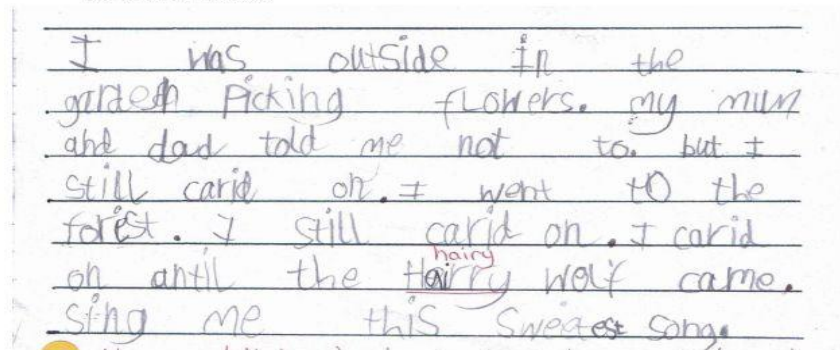 I was outside in the
garden Picking flowers. my mum
and dad told me not to. but I
still carid on. I went to the
forist. I still carid on. I carid
on antil the hairry wolf came.
hairy
sing me this sweatest song.